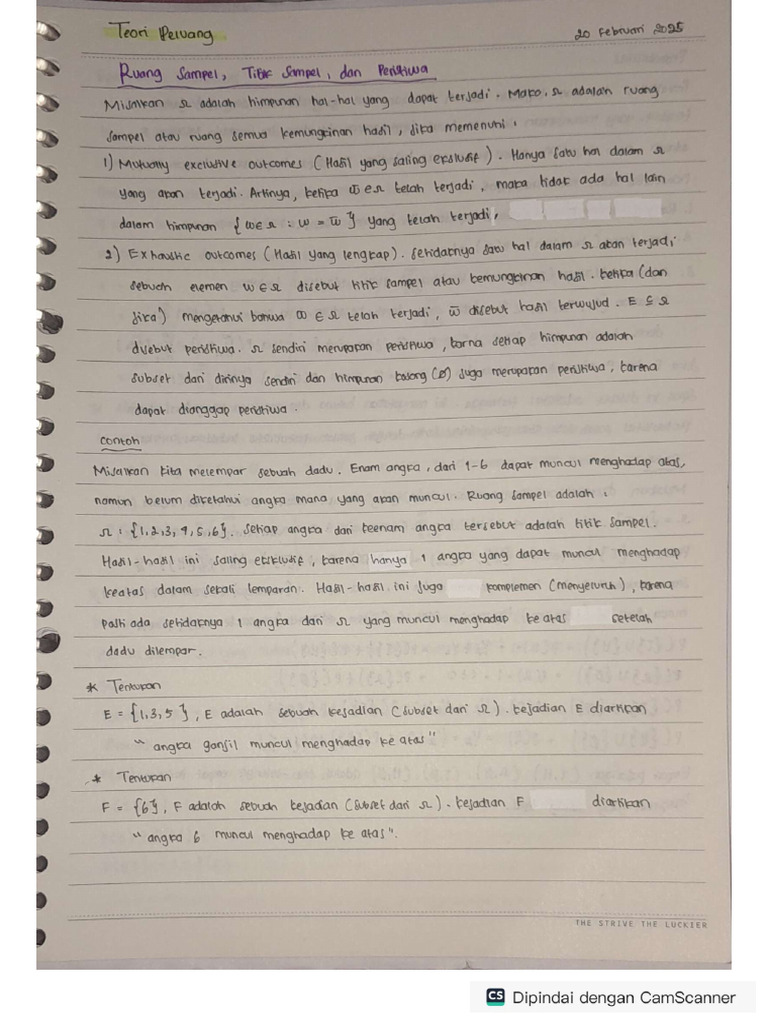 Teori Peluang
20 Februari 2025
Ruang Sampel, Titik Sampel, dan Peristiwa
Misalkan Ω adalah himpunan hal-hal yang dapat terjadi. Maka, Ω adalah ruang
sampel atau ruang semua kemungkinan hasil, jika memenuhi :
1) Mutually exclusive outcomes (Hasil yang saling ekslusif). Hanya satu hal dalam Ω
yang akan terjadi. Artinya, ketika ω̅ ∈ Ω telah terjadi, maka tidak ada hal lain
dalam himpunan {ω ∈ Ω : ω = ω̅} yang telah terjadi,
2) Exhaustic outcomes (Hasil yang lengkap). Setidaknya satu hal dalam Ω akan terjadi,
sebuah elemen ω ∈ Ω disebut titik sampel atau kemungkinan hasil. Ketika (dan
jika) mengetahui bahwa ω ∈ Ω telah terjadi, ω̅ disebut hasil terwujud. E ⊆ Ω
disebut peristiwa. Ω sendiri merupakan peristiwa, karna setiap himpunan adalah
subset dari dirinya sendiri dan himpunan kosong (Ø) juga merupakan peristiwa, karena
dapat dianggap peristiwa.
Contoh
Misalkan kita melempar sebuah dadu. Enam angka, dari 1-6 dapat muncul menghadap atas,
namun belum diketahui angka mana yang akan muncul. Ruang sampel adalah :
Ω : {1,2,3,4,5,6}. Setiap angka dari keenam angka tersebut adalah titik sampel.
Hasil-hasil ini saling eksklusif, karena hanya 1 angka yang dapat muncul menghadap
keatas dalam sekali lemparan. Hasil-hasil ini juga komplemen (menyeluruh), karena
pasti ada setidaknya 1 angka dari Ω yang muncul menghadap ke atas setelah
dadu dilempar.
* Tentukan
E = {1,3,5}, E adalah sebuah kejadian (subset dari Ω). Kejadian E diartikan
"angka ganjil muncul menghadap ke atas"
* Tentukan
F = {6}, F adalah sebuah kejadian (subset dari Ω). Kejadian F diartikan
"angka 6 muncul menghadap ke atas".
THE STRIVE THE LUCKIER
CS Dipindai dengan CamScanner